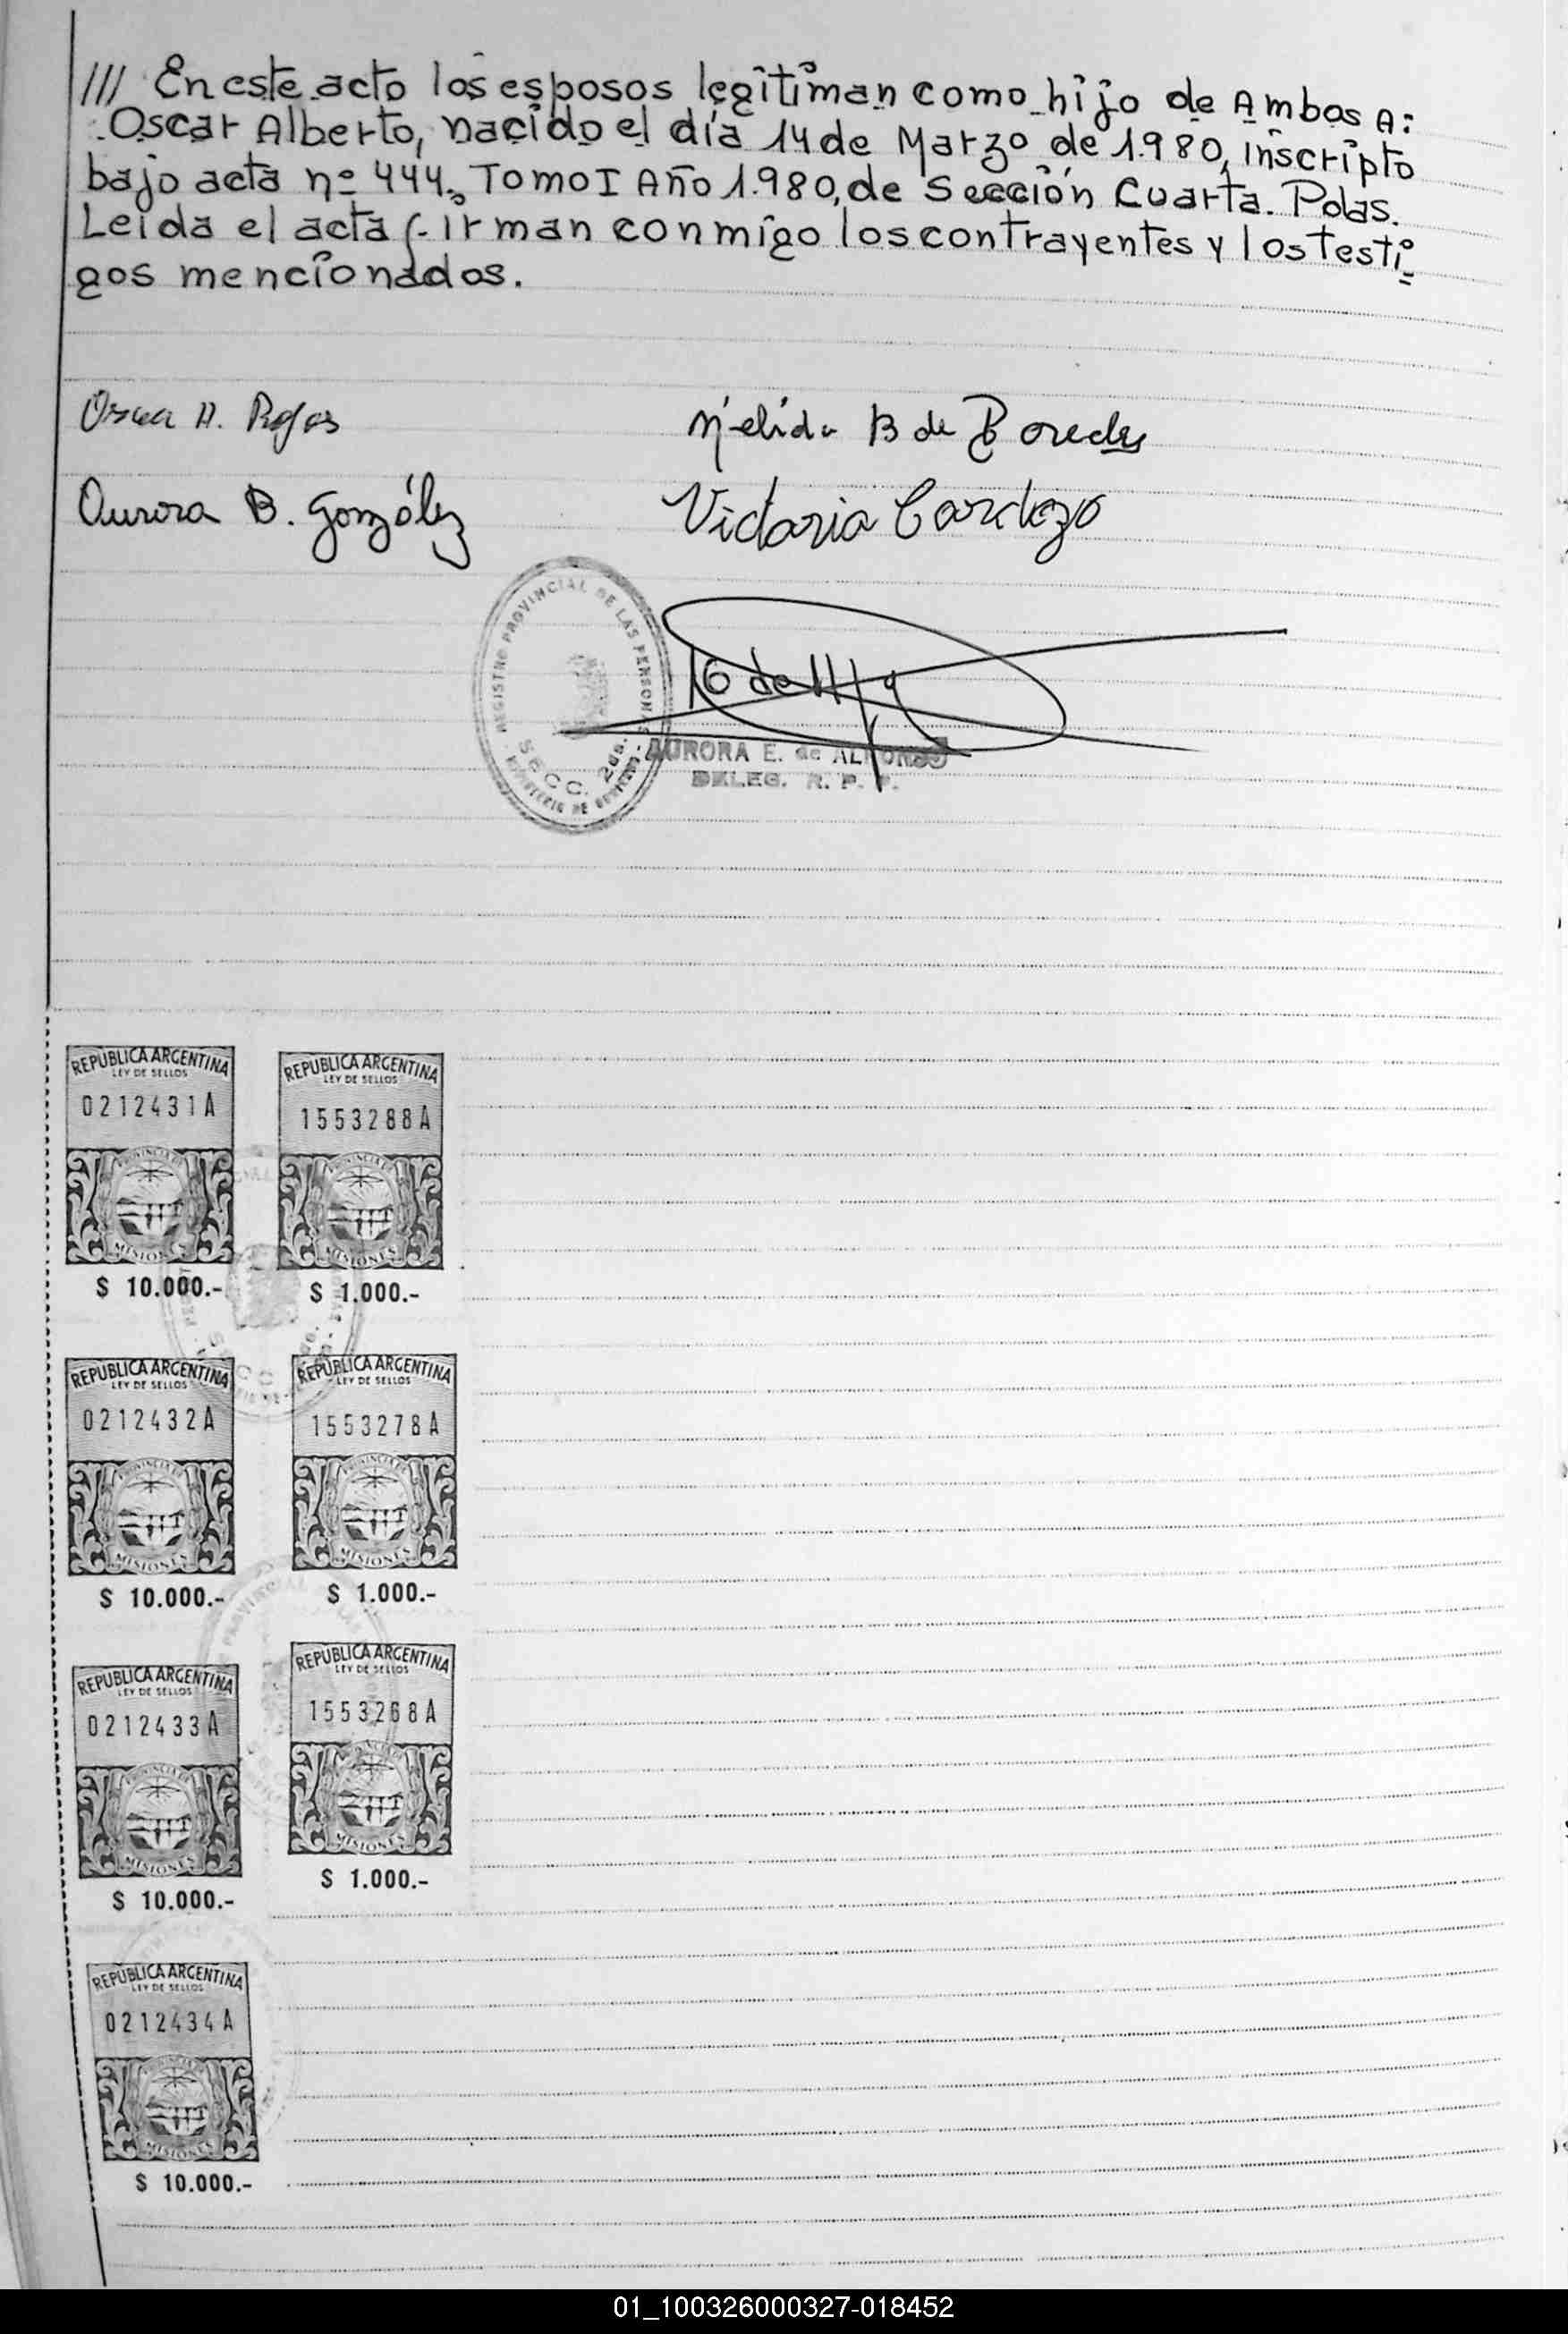 /// En este acto los esposos legitiman como hijo de Ambos A:
Oscar Alberto, nacido el día 14 de Marzo de 1.980, inscripto
bajo acta nº 444, Tomo I Año 1.980, de Sección Cuarta. Pdas.
Leida el acta firman conmigo los contrayentes y los testi
gos mencionados.
Oscar A. Rojas
Nélida B de Paredes
Aurora B. González
Victoria Cardozo
REGISTRO PROVINCIAL DE LAS PERSONAS
SECC. 2da.
MINISTERIO DE GOBIERNO
AURORA E. de ALFONSO
DELEG. R. P. P.
REPUBLICA ARGENTINA
LEY DE SELLOS
0212431A
PROVINCIA DE
MISIONES
$ 10.000.-
REPUBLICA ARGENTINA
LEY DE SELLOS
1553288A
PROVINCIA DE
MISIONES
$ 1.000.-
REPUBLICA ARGENTINA
LEY DE SELLOS
0212432A
PROVINCIA DE
MISIONES
$ 10.000.-
REPUBLICA ARGENTINA
LEY DE SELLOS
1553278A
PROVINCIA DE
MISIONES
$ 1.000.-
REPUBLICA ARGENTINA
LEY DE SELLOS
0212433A
PROVINCIA DE
MISIONES
$ 10.000.-
REPUBLICA ARGENTINA
LEY DE SELLOS
1553268A
PROVINCIA DE
MISIONES
$ 1.000.-
REPUBLICA ARGENTINA
LEY DE SELLOS
0212434A
PROVINCIA DE
MISIONES
$ 10.000.-
01_100326000327-018452